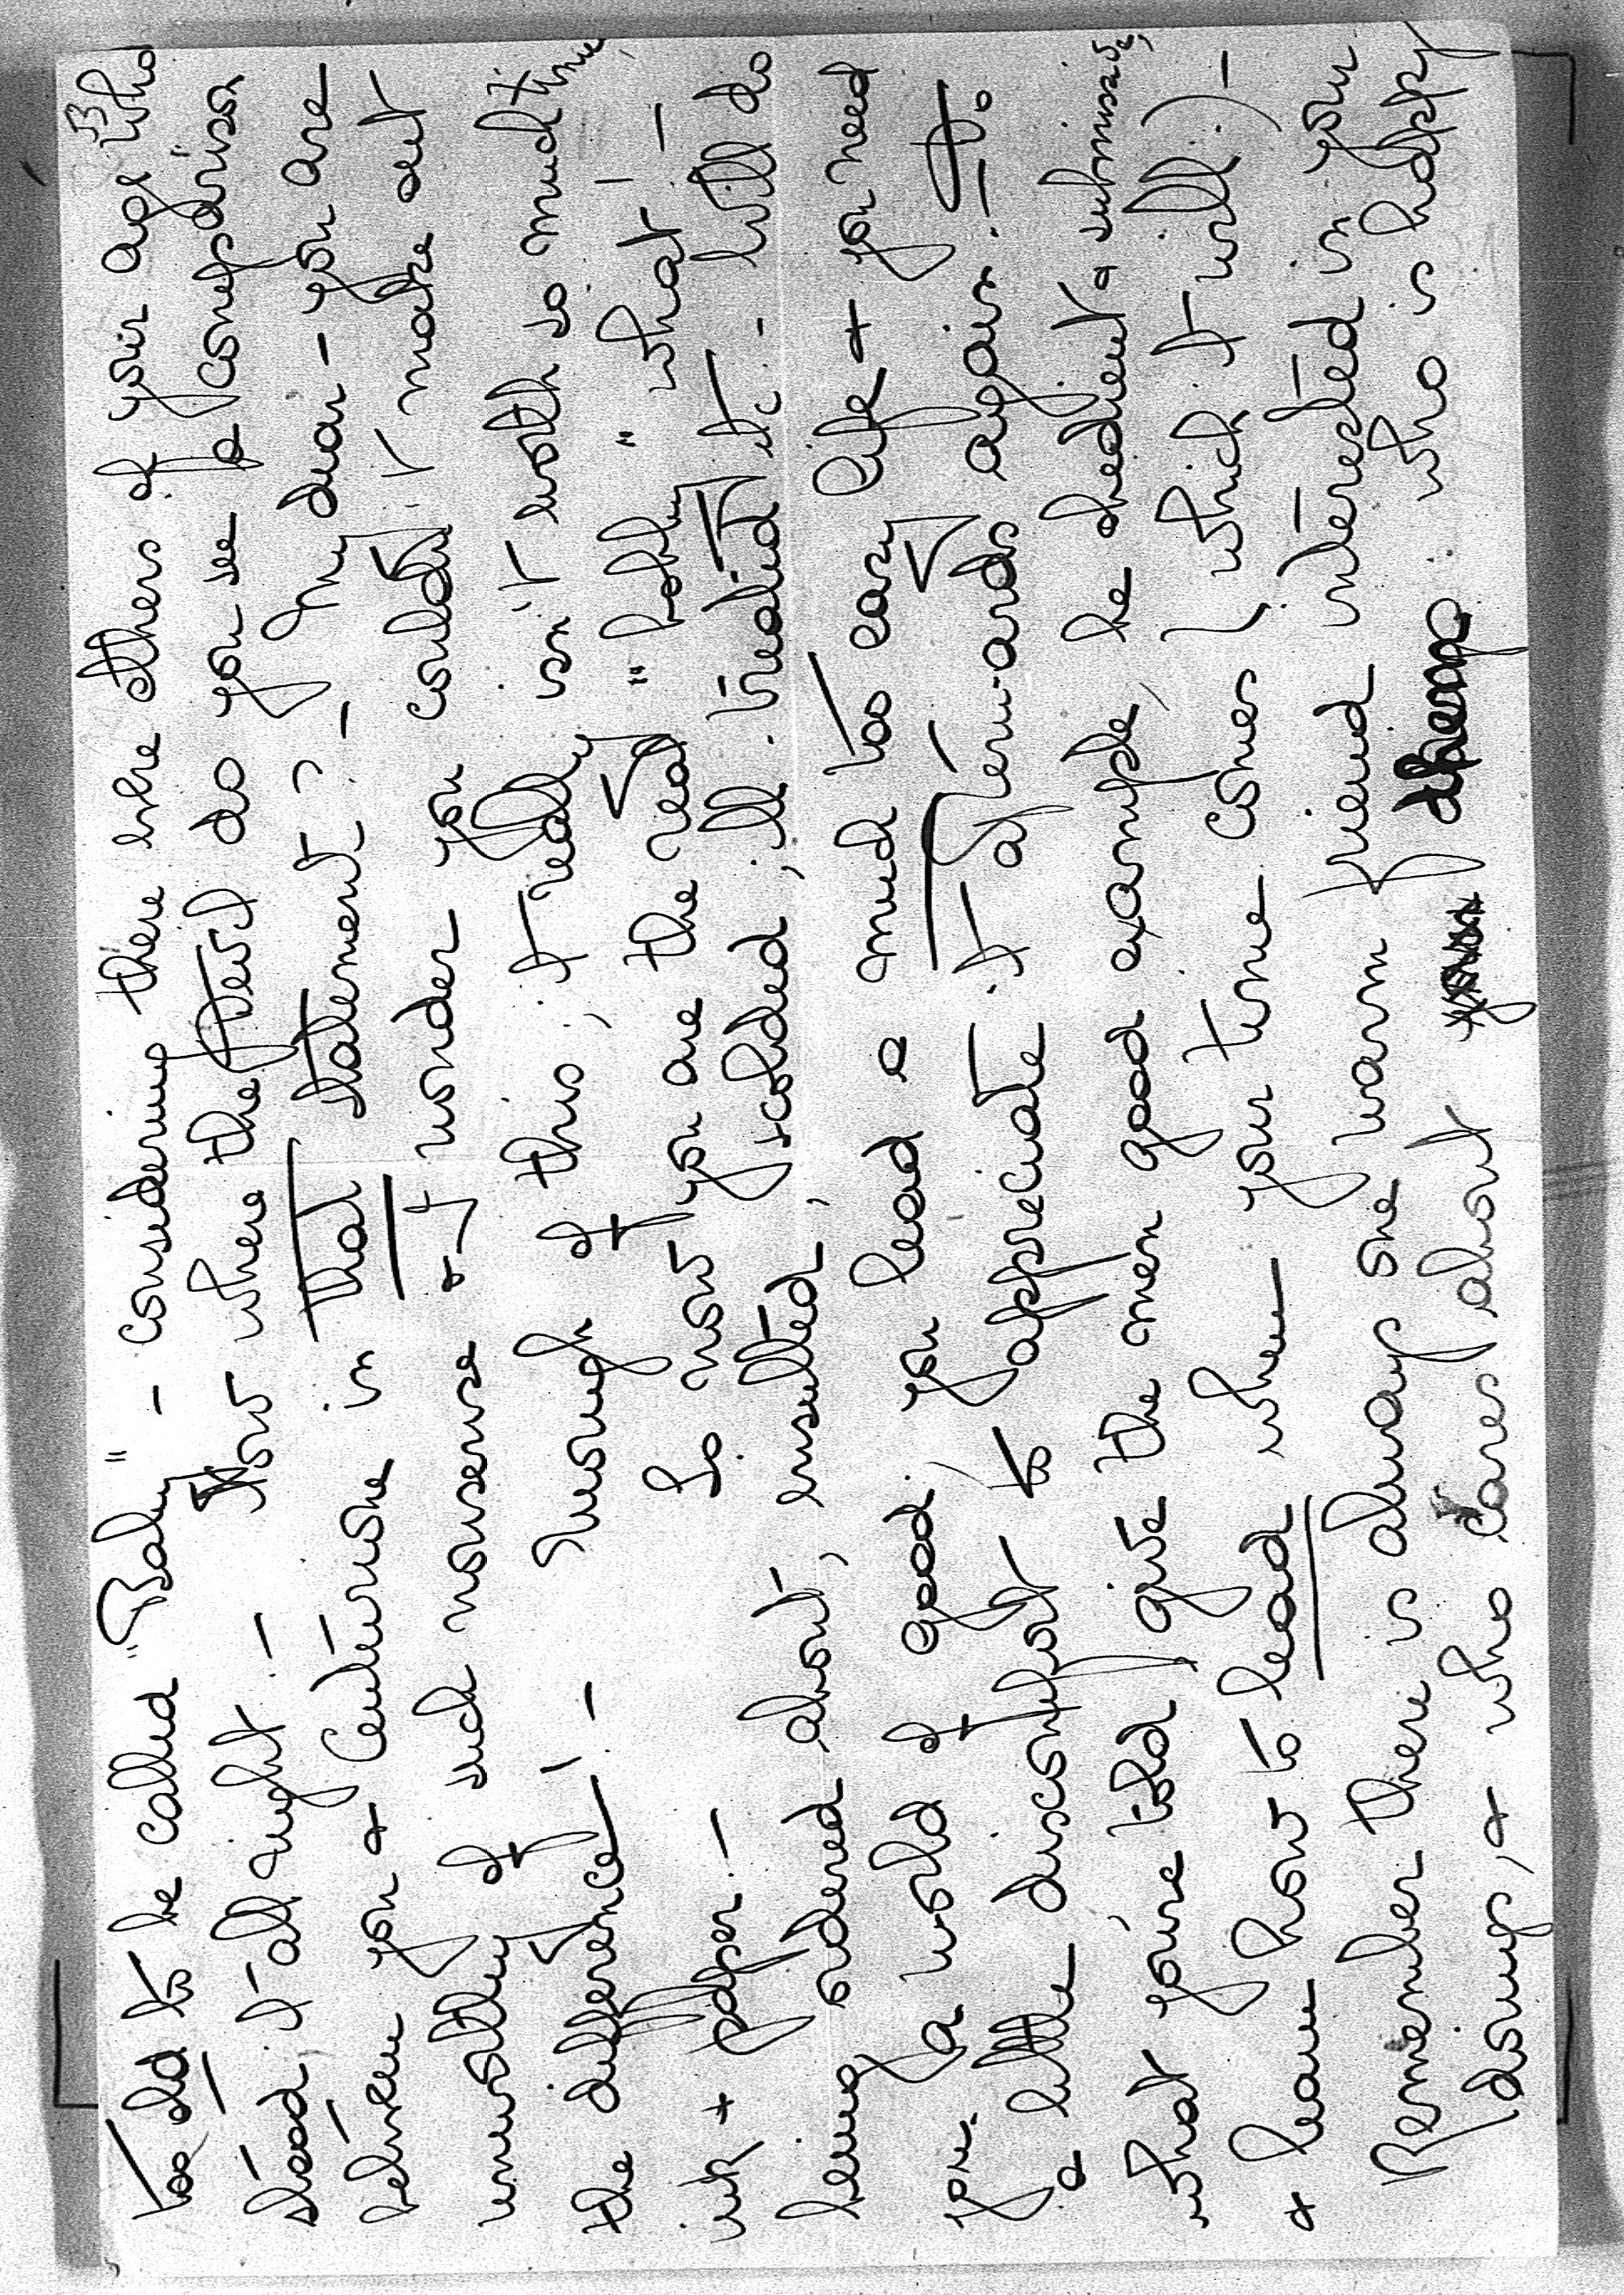 53
too old to be called "Baby" - considering there were others of your age who
stood it all right! - Now where the deuce do you see a comparison
between you & Centouche in that statement? - My dear - you are
unworthy of such nonsense & I wonder you couldn't make out
the difference! - Enough of this, it really isn't worth so much time
ink & paper! - So now you are the real "Bobby" what! -
being ordered about, insulted, scolded, ill treated etc. - will do
you a world of good, you lead a much too easy life & you need
a little discomfort to appreciate it afterwards again! - Do
what you're told, give the men good example, be obedient & submissive,
& learn how to lead when your time comes (which it will!) -
Remember there is always one warm friend interested in your
doings, & who cares about who is happy